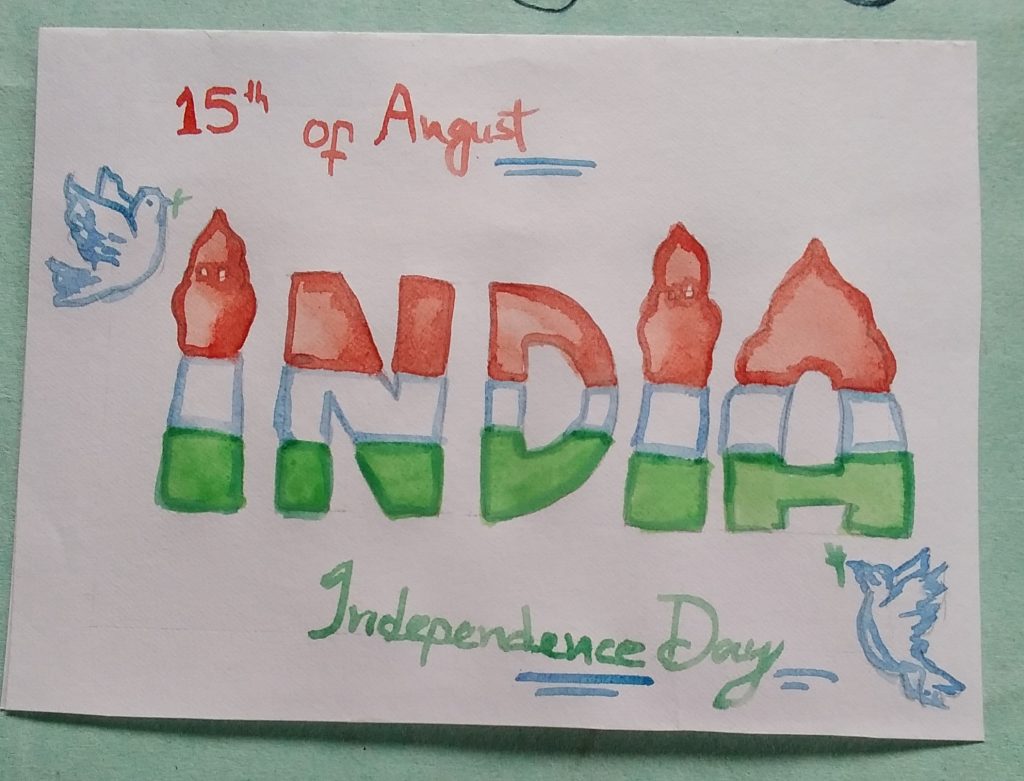 15th of August
INDIA
Independence Day